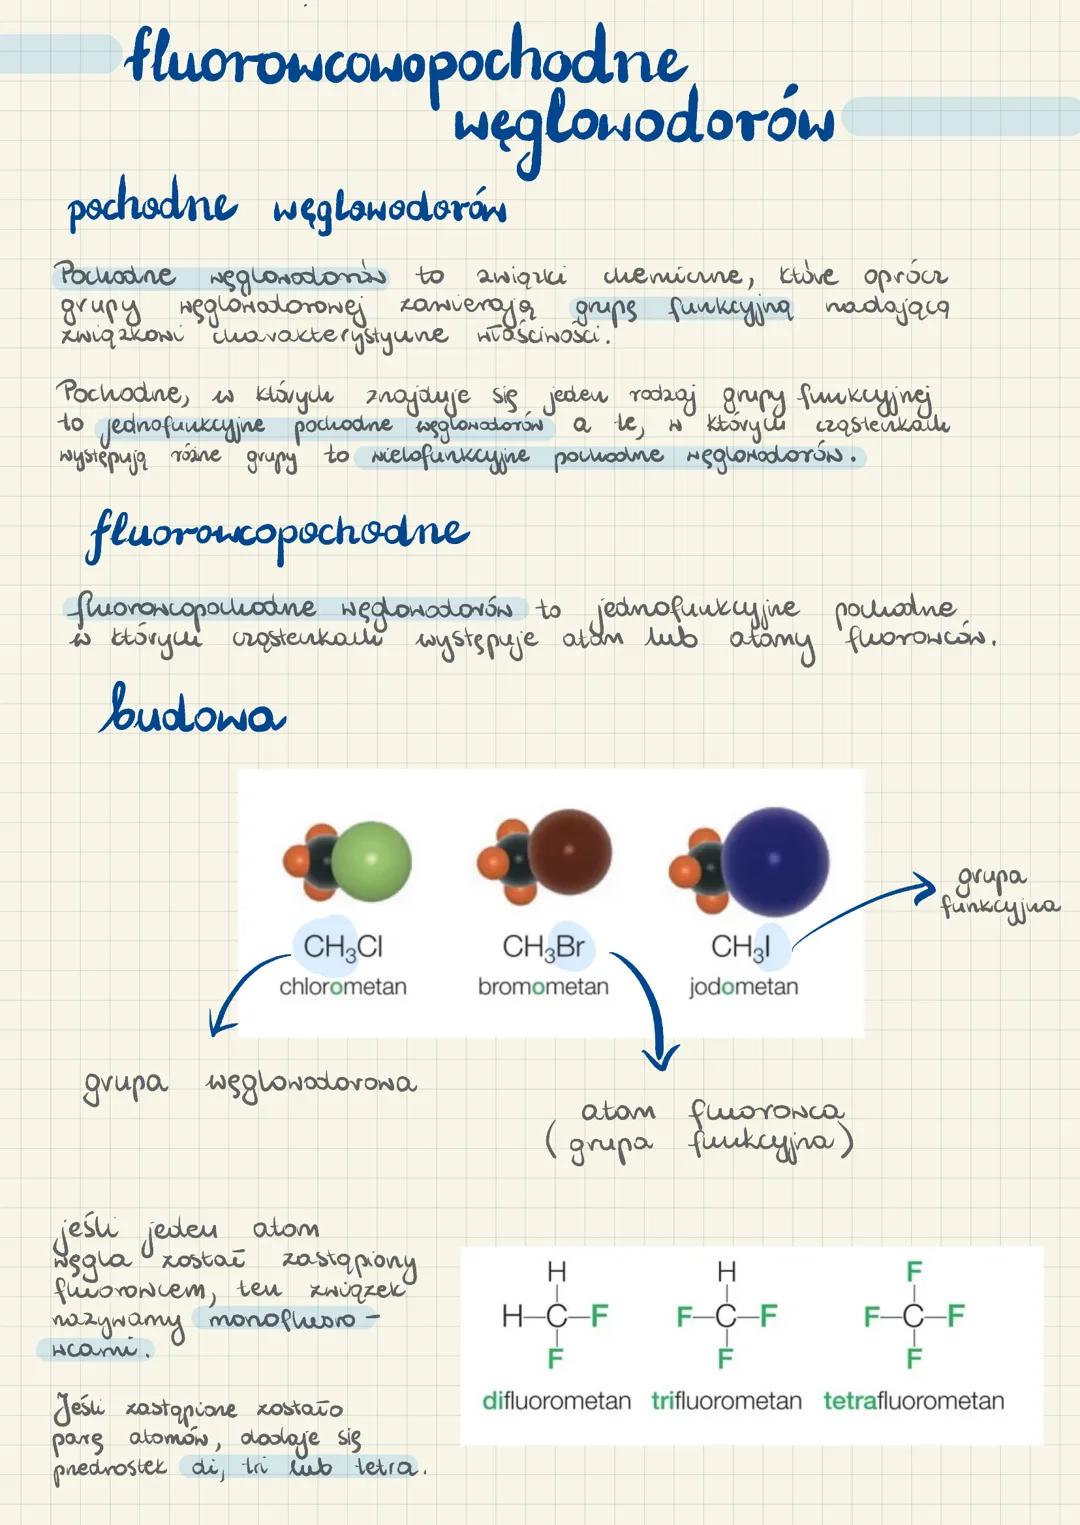 fluorowcowopochodne
węglowodorów
pochodne węglowodorów
Pochodne węglowodorów to związki chemiczne, które oprócz
grupy węglowodorowej zawierają grupę funkcyjną nadającą
związkowi charakterystyczne właściwości.
Pochodne, w których znajduje się jeden rodzaj grupy funkcyjnej
to jednofunkcyjne pochodne węglowodorów a te, w których cząsteczkach
występują różne grupy to wielofunkcyjne pochodne węglowodorów.
fluorowcopochodne
fluorowcopochodne węglowodorów to jednofunkcyjne pochodne
w których cząsteczkach występuje atom lub atomy fluorowców.
budowa
grupa
funkcyjna
CH₃Cl CH₃Br CH₃I
chlorometan bromometan jodometan
grupa węglowodorowa
atom fluorowca
(grupa funkcyjna)
jeśli jeden atom
węgla został zastąpiony
fluorowcem, ten związek
nazywamy monofluoro-
wcami.
Jeśli zastąpione zostało
parę atomów, dodaje się
przedrostek di, tri lub tetra.
H H F
H-C-F F-C-F F-C-F
F F F
difluorometan trifluorometan tetrafluorometan